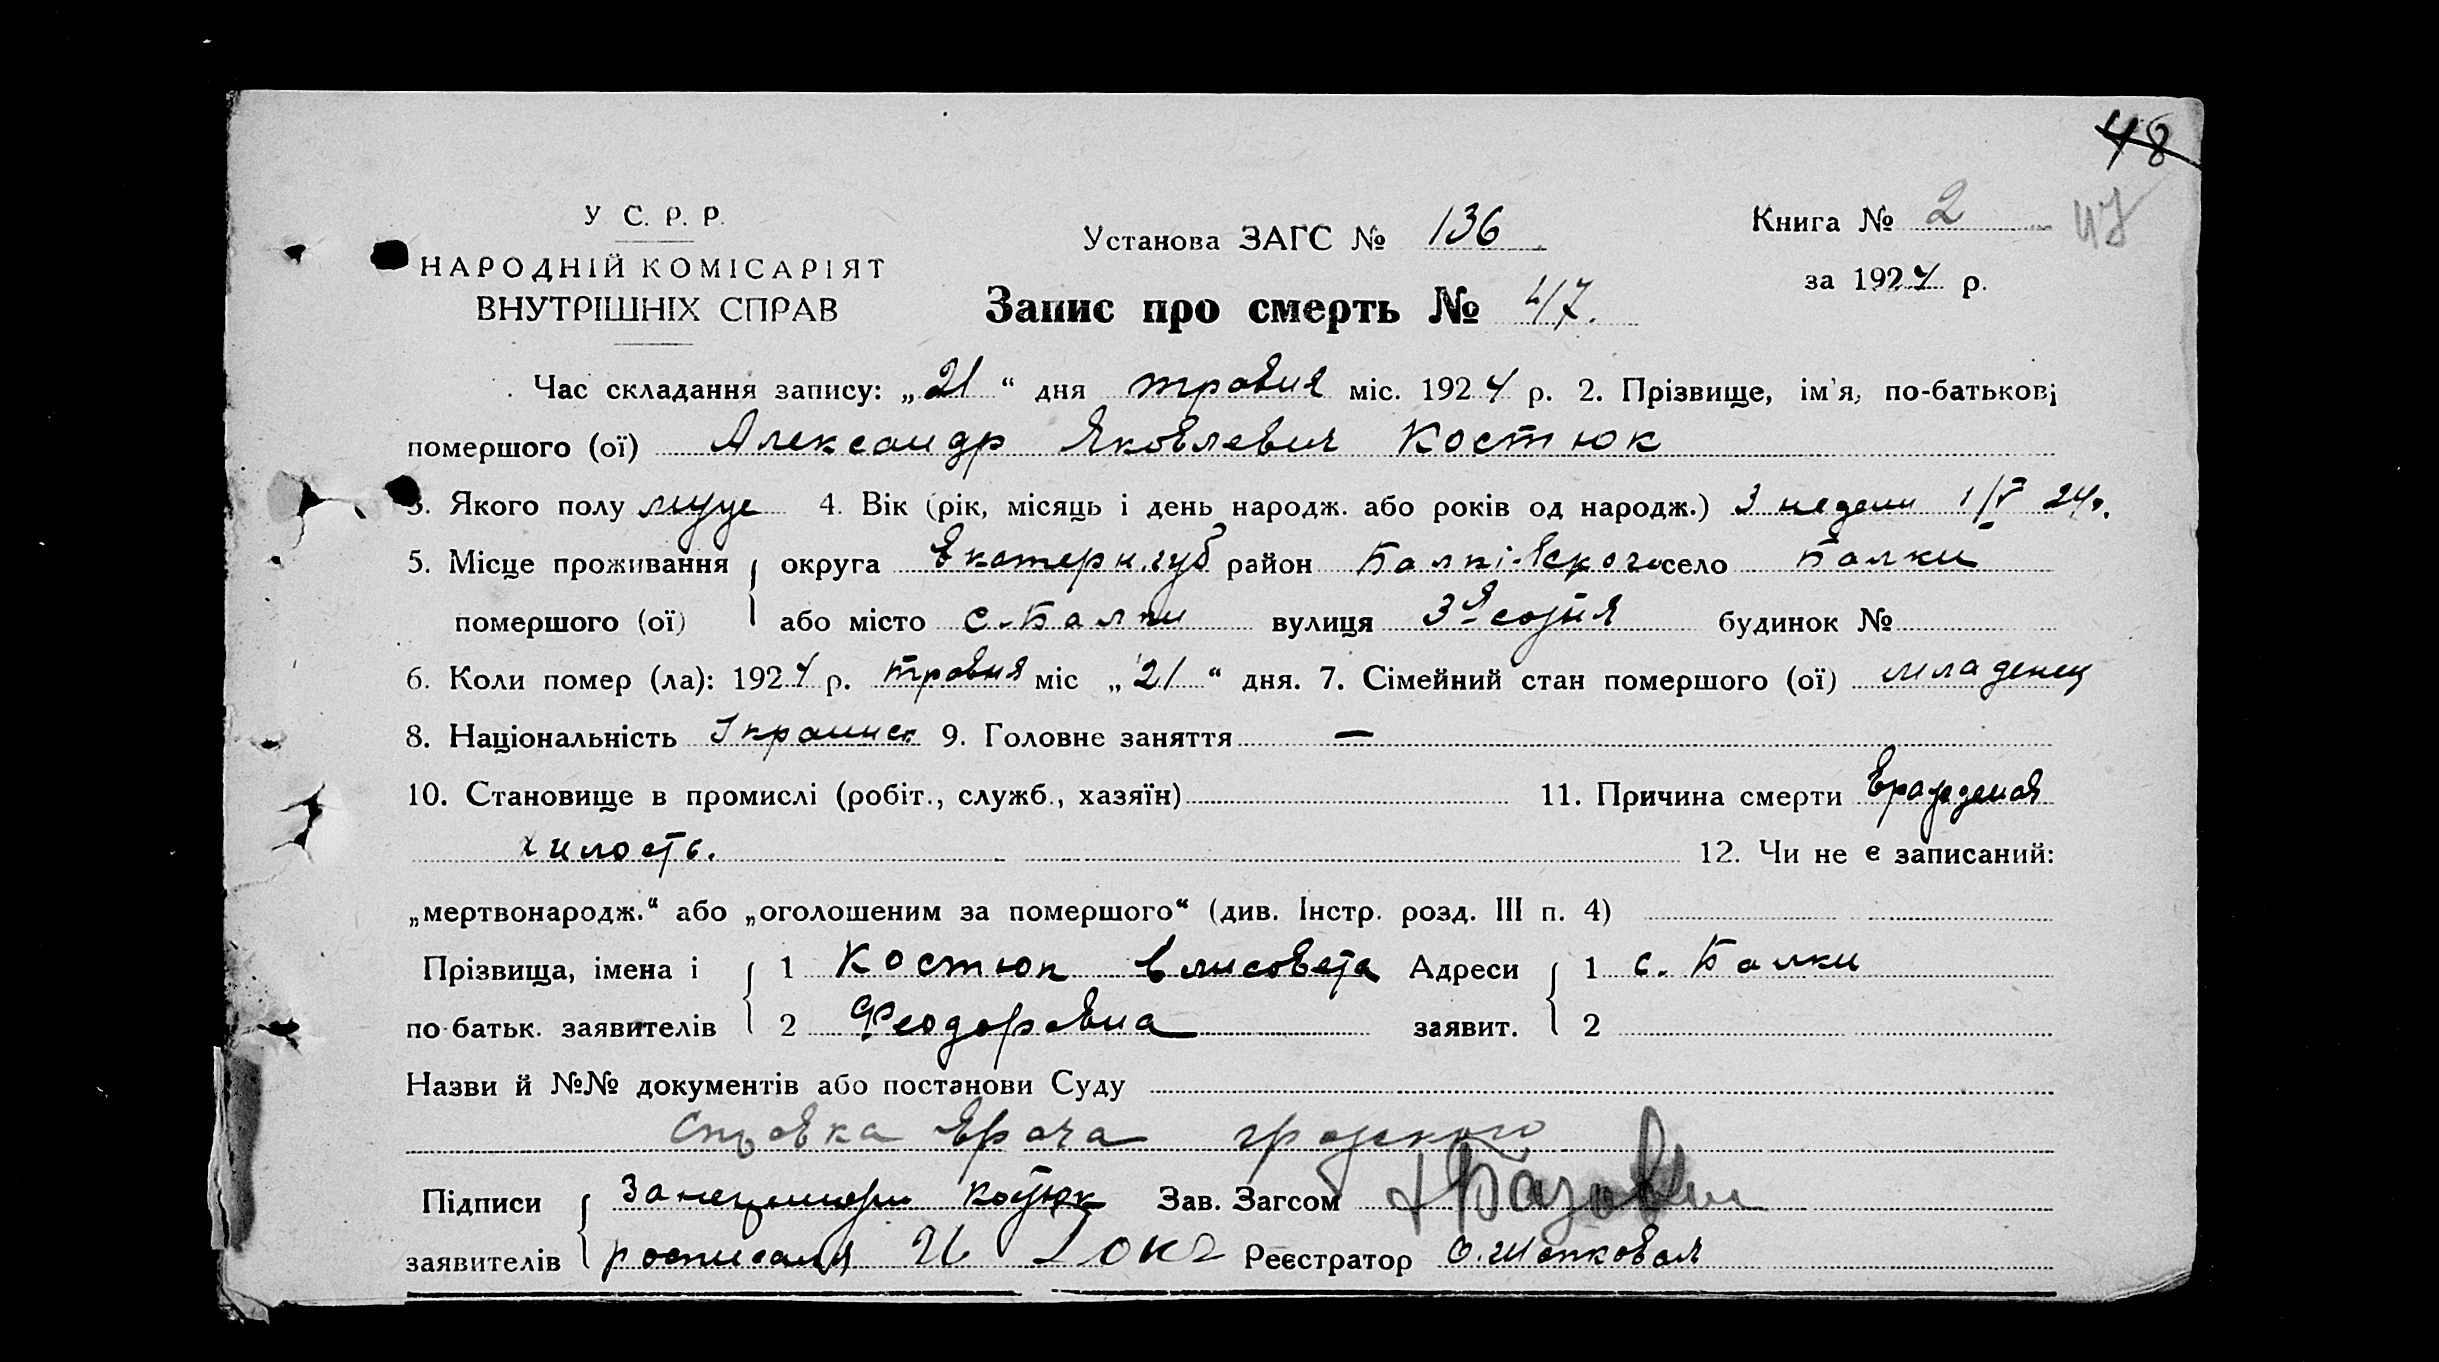 48
47
У С. Р. Р.
НАРОДНІЙ КОМІСАРІЯТ
ВНУТРІШНІХ СПРАВ
Установа ЗАГС № 136
Книга № 2
за 1924 р.
Запис про смерть № 47.
Час складання запису: „21“ дня травня міс. 1924 р. 2. Прізвище, ім'я, по-батькові
помершого (ої) Александр Яковлевич Костюк
3. Якого полу муж 4. Вік (рік, місяць і день народж. або років од народж.) 3 недели 1/V 24г.
5. Місце проживання округа Екатерин. губ район Балківского село Балки
помершого (ої) або місто с. Балки вулиця 3я сотня будинок №
6. Коли помер (ла): 1924 р. травня міс „21“ дня. 7. Сімейний стан помершого (ої) младенец
8. Національність 9. Головне заняття —
10. Становище в промислі (робіт., служб., хазяїн) 11. Причина смерти Врожденая
хилость. 12. Чи не є записаний:
„мертвонародж.“ або „оголошеним за помершого“ (див. Інстр. розд. III п. 4)
Прізвища, імена і 1 Костюк Елисовета Адреси 1 с. Балки
по-батьк. заявителів 2 Феодоровна заявит. 2
Назви й №№ документів або постанови Суду
Справка врача
Підписи За неграмотн Костюк Зав. Загсом
заявителів росписался Реєстратор